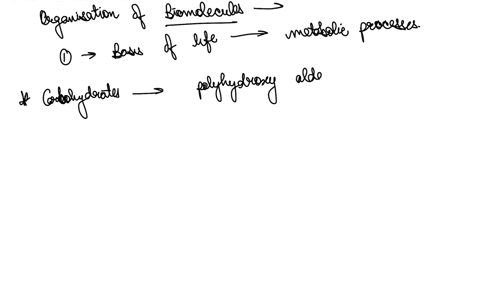 Organisation of Biomolecules →
① → Basis of life → metabolic processes.
* Carbohydrates → polyhydroxy alde